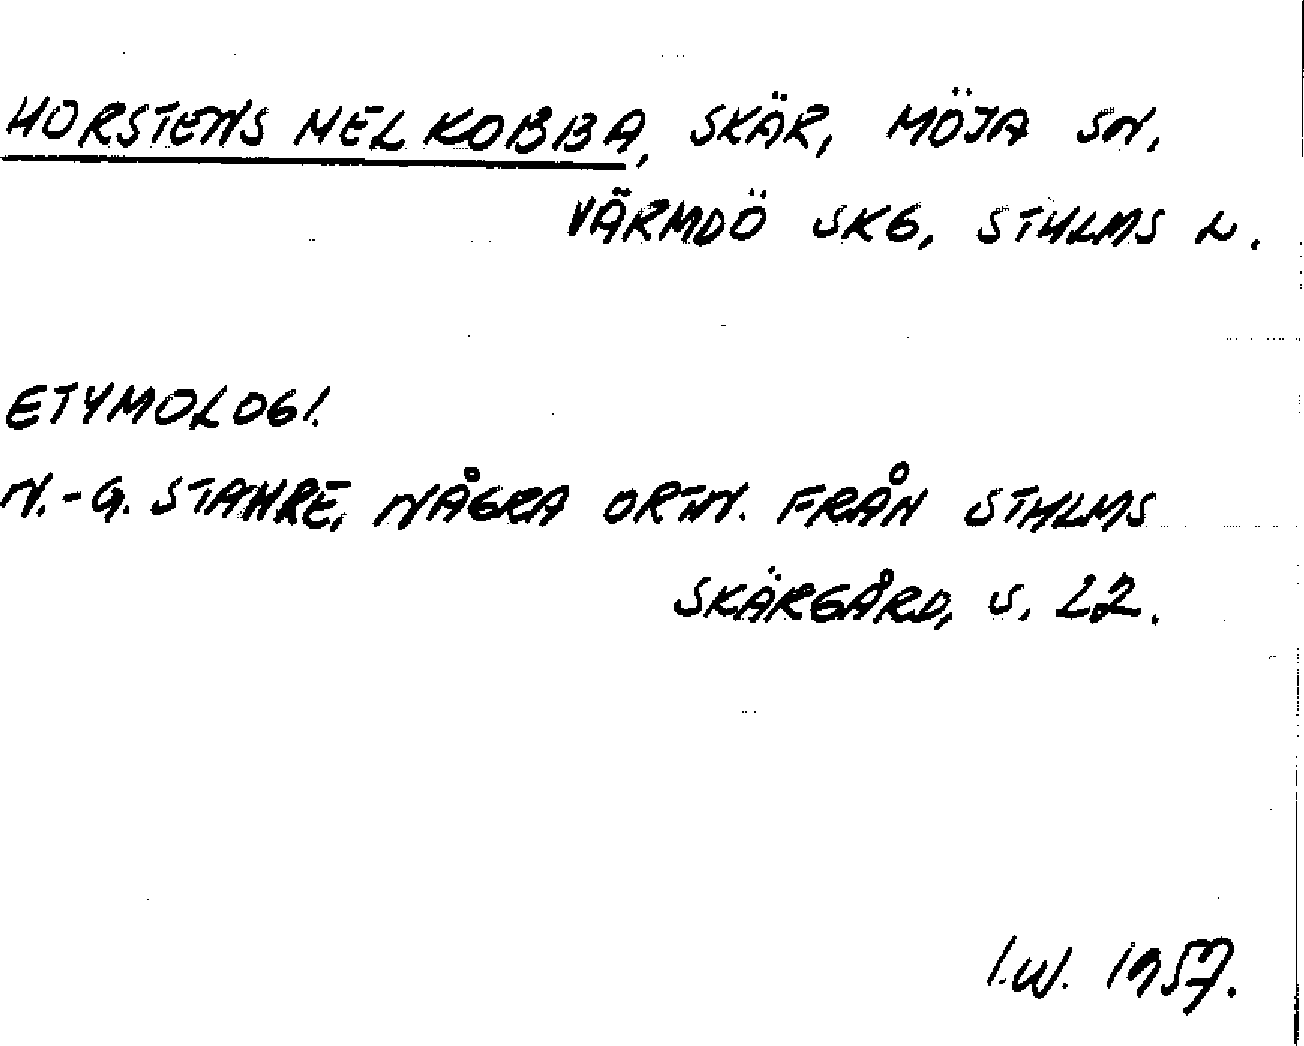 HORSTENS MELKOBBA, SKÄR, MÖJA SN,
VÄRMDÖ SKG, STHLMS L.
ETYMOLOGI.
N.-G. STAHRE, NÅGRA ORTN. FRÅN STHLMS
SKÄRGÅRD, S. 22.
I.W. 1957.